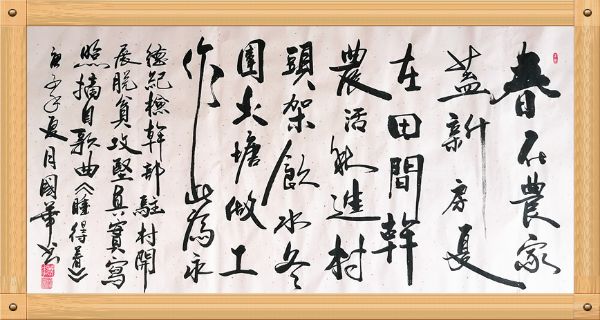 春在農家
蓋新房夏
在田間幹
農活秋進村
頭架飲水冬
圍火塘做工
作此為永
德紀檢幹部駐村開
展脫貧攻堅真實寫
照摘自歌曲《睡得着》
庚子年夏月國華书